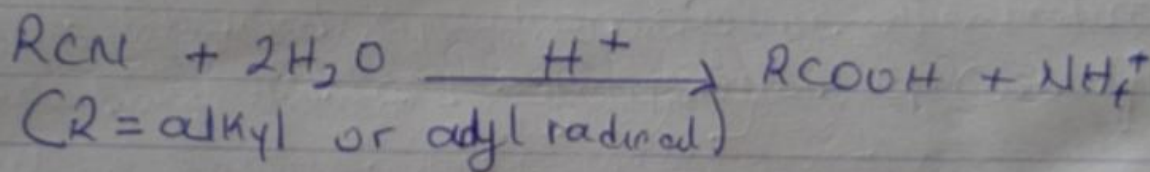 RCN + 2H₂O H⁺→ RCOOH + NH₄⁺
(R = alkyl or adyl radical)